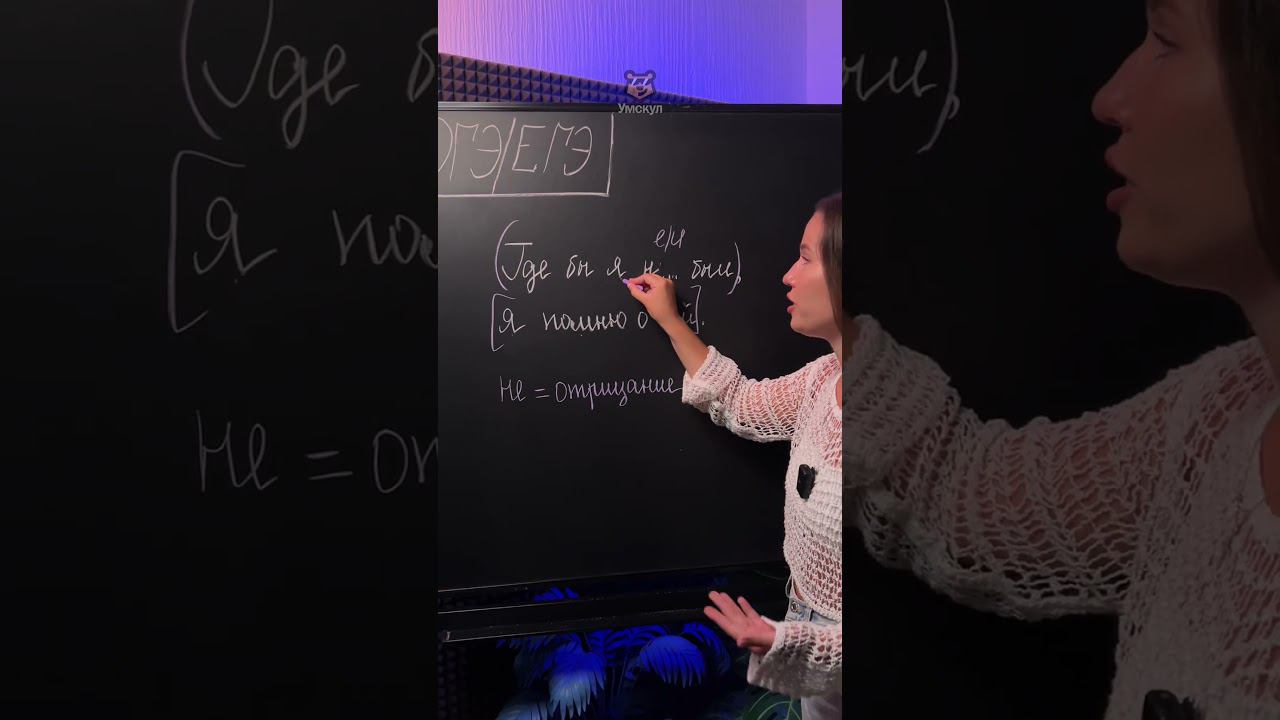 Умскул
ОГЭ/ЕГЭ
е/и
(Где бы я н... был),
[Я помню о й].
не = отрицание